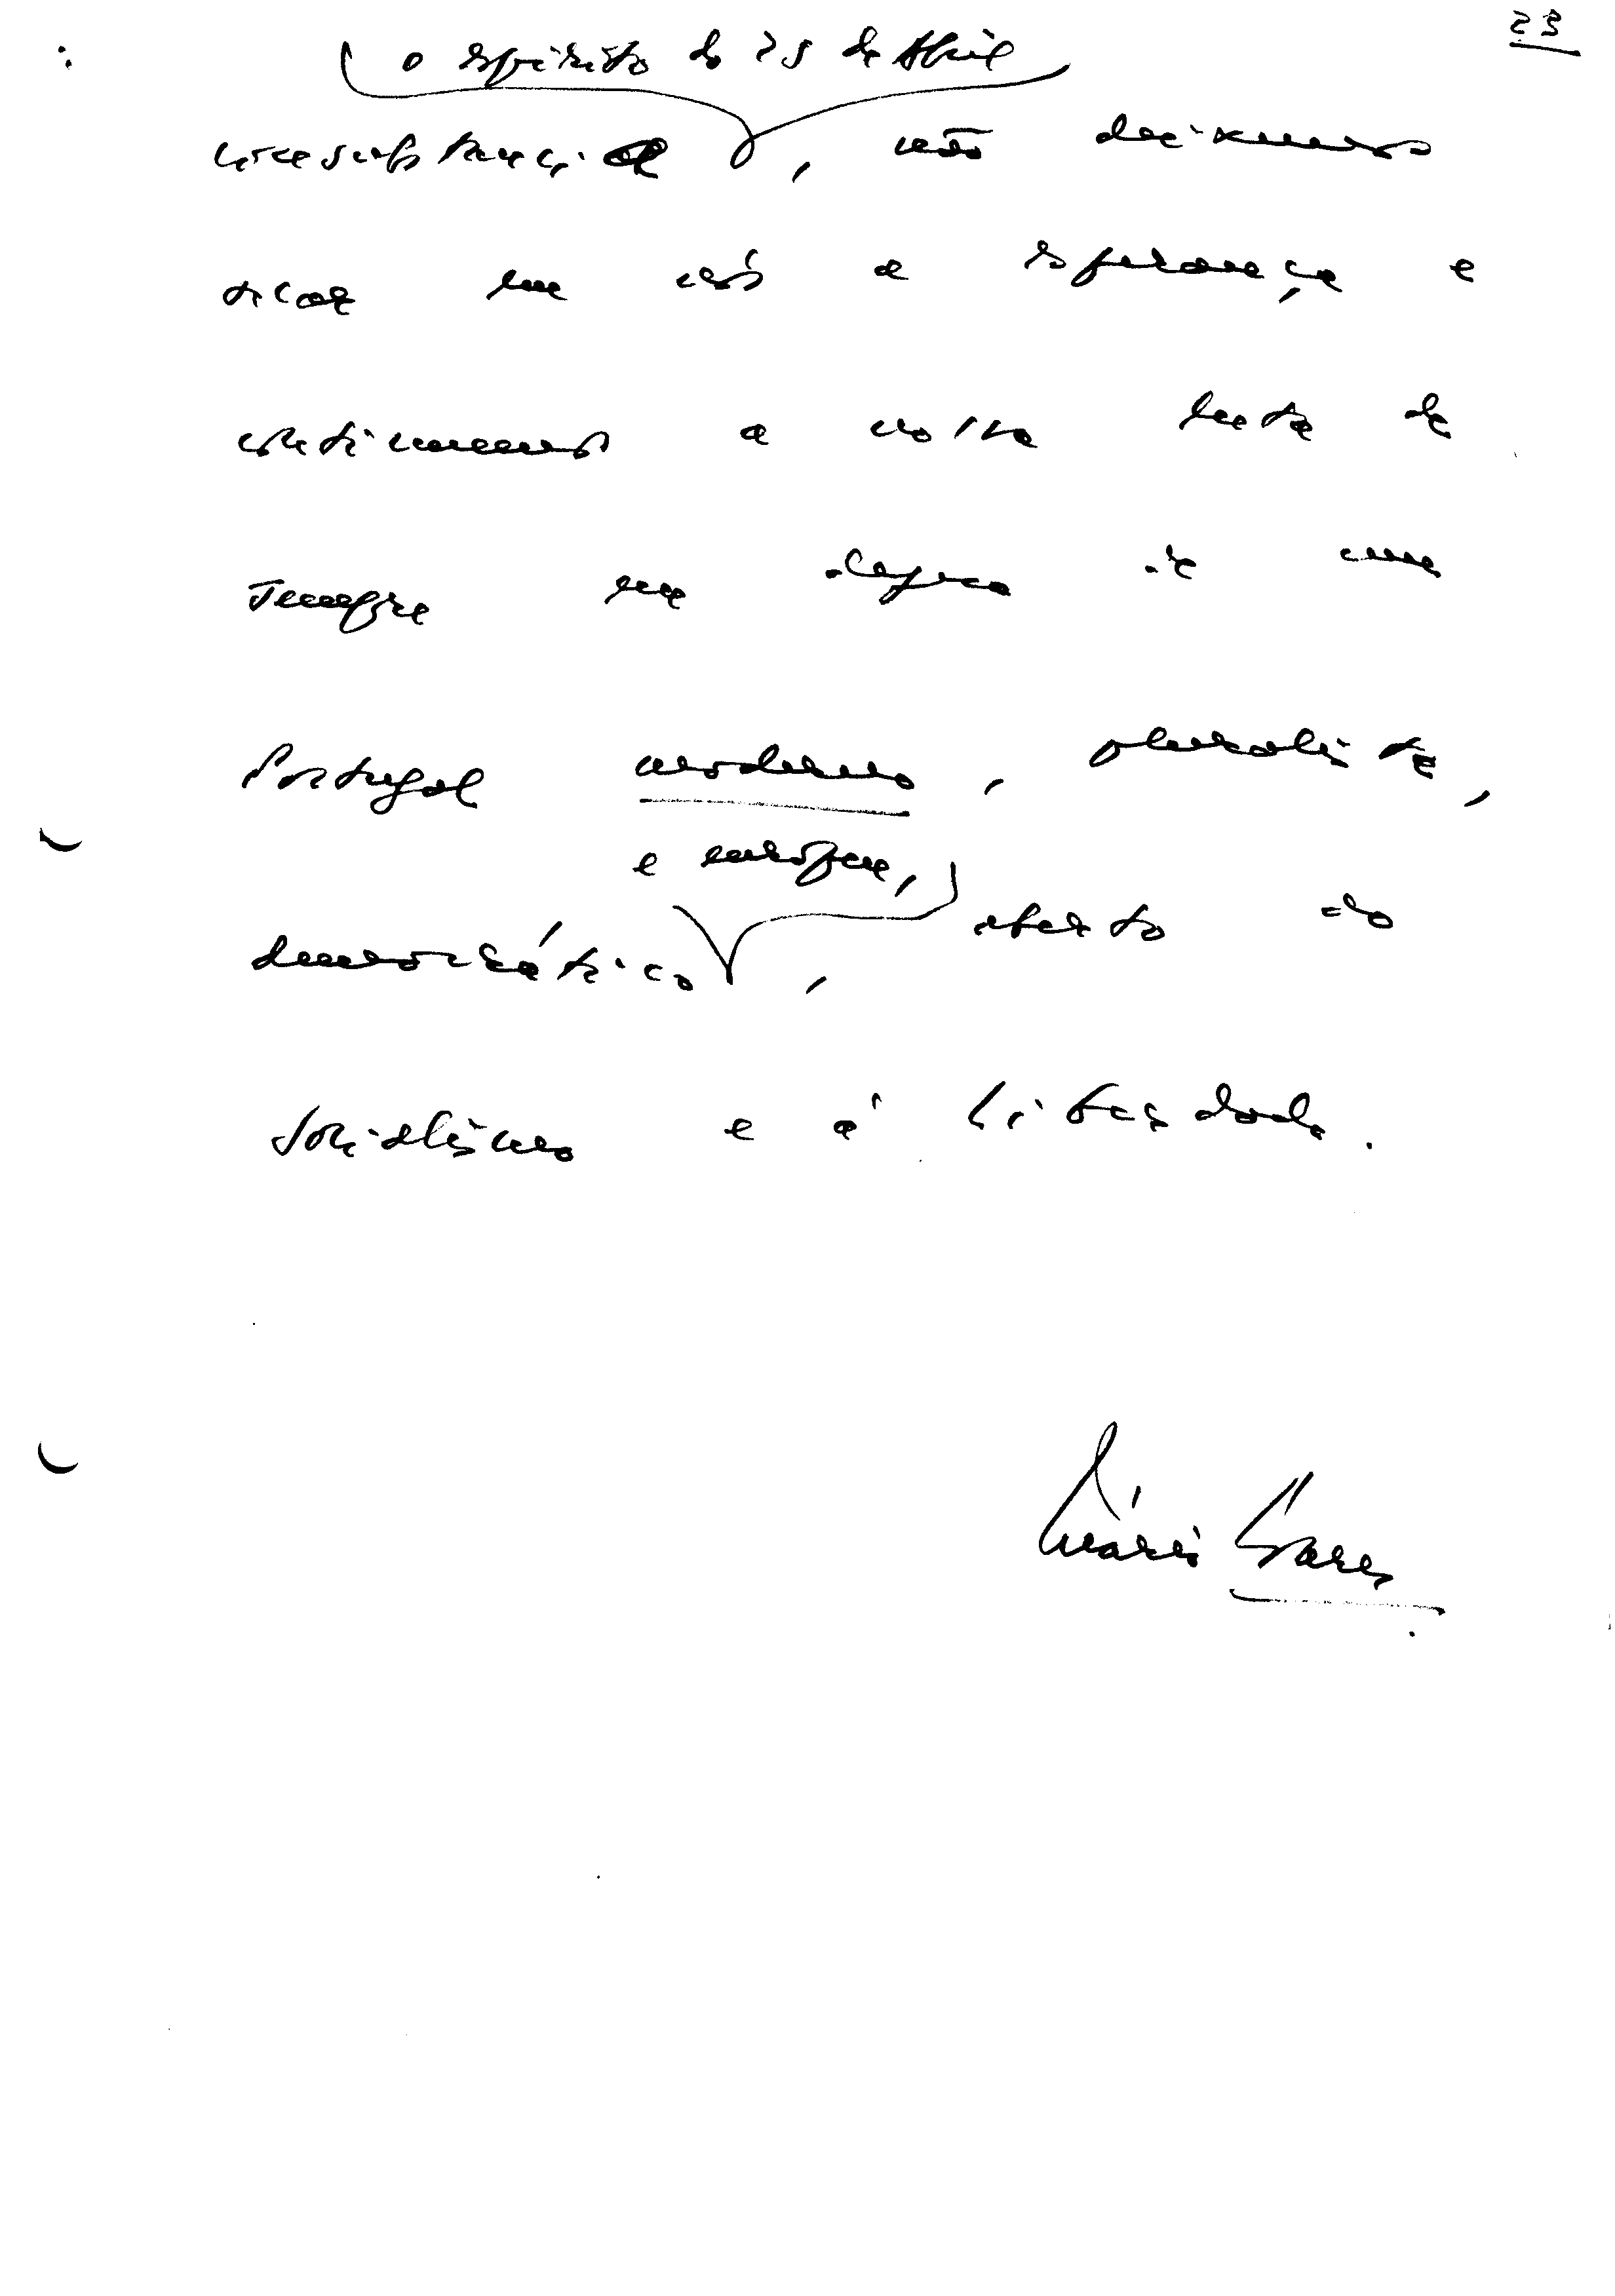 23
o espírito do 25 de Abril
circunstancial, não deixemos
secar em nós a esperança e
continuemos a nossa luta de
sempre em defesa de um
Portugal moderno, pluralista,
e europeu,
democrático, aberto ao
socialismo e à liberdade.
Mário Soares